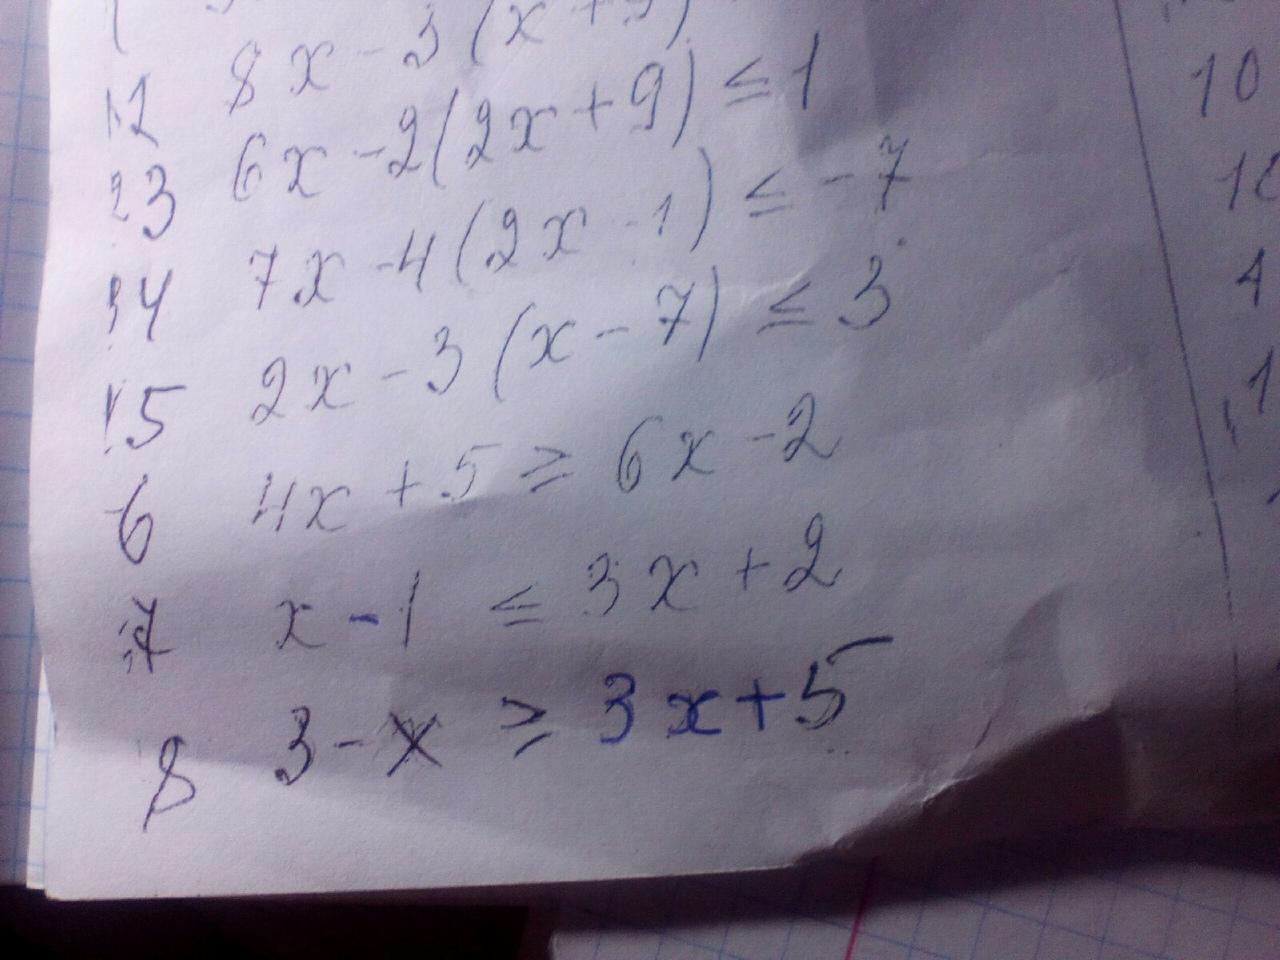 12 8x - 3(x+9)
13 6x - 2(2x+9) ≤ 1
14 7x - 4(2x - 1) ≤ -7
15 2x - 3(x - 7) ≤ 3
6 4x + 5 ≥ 6x - 2
7 x - 1 ≤ 3x + 2
8 3 - x ≥ 3x + 5
10
4
1